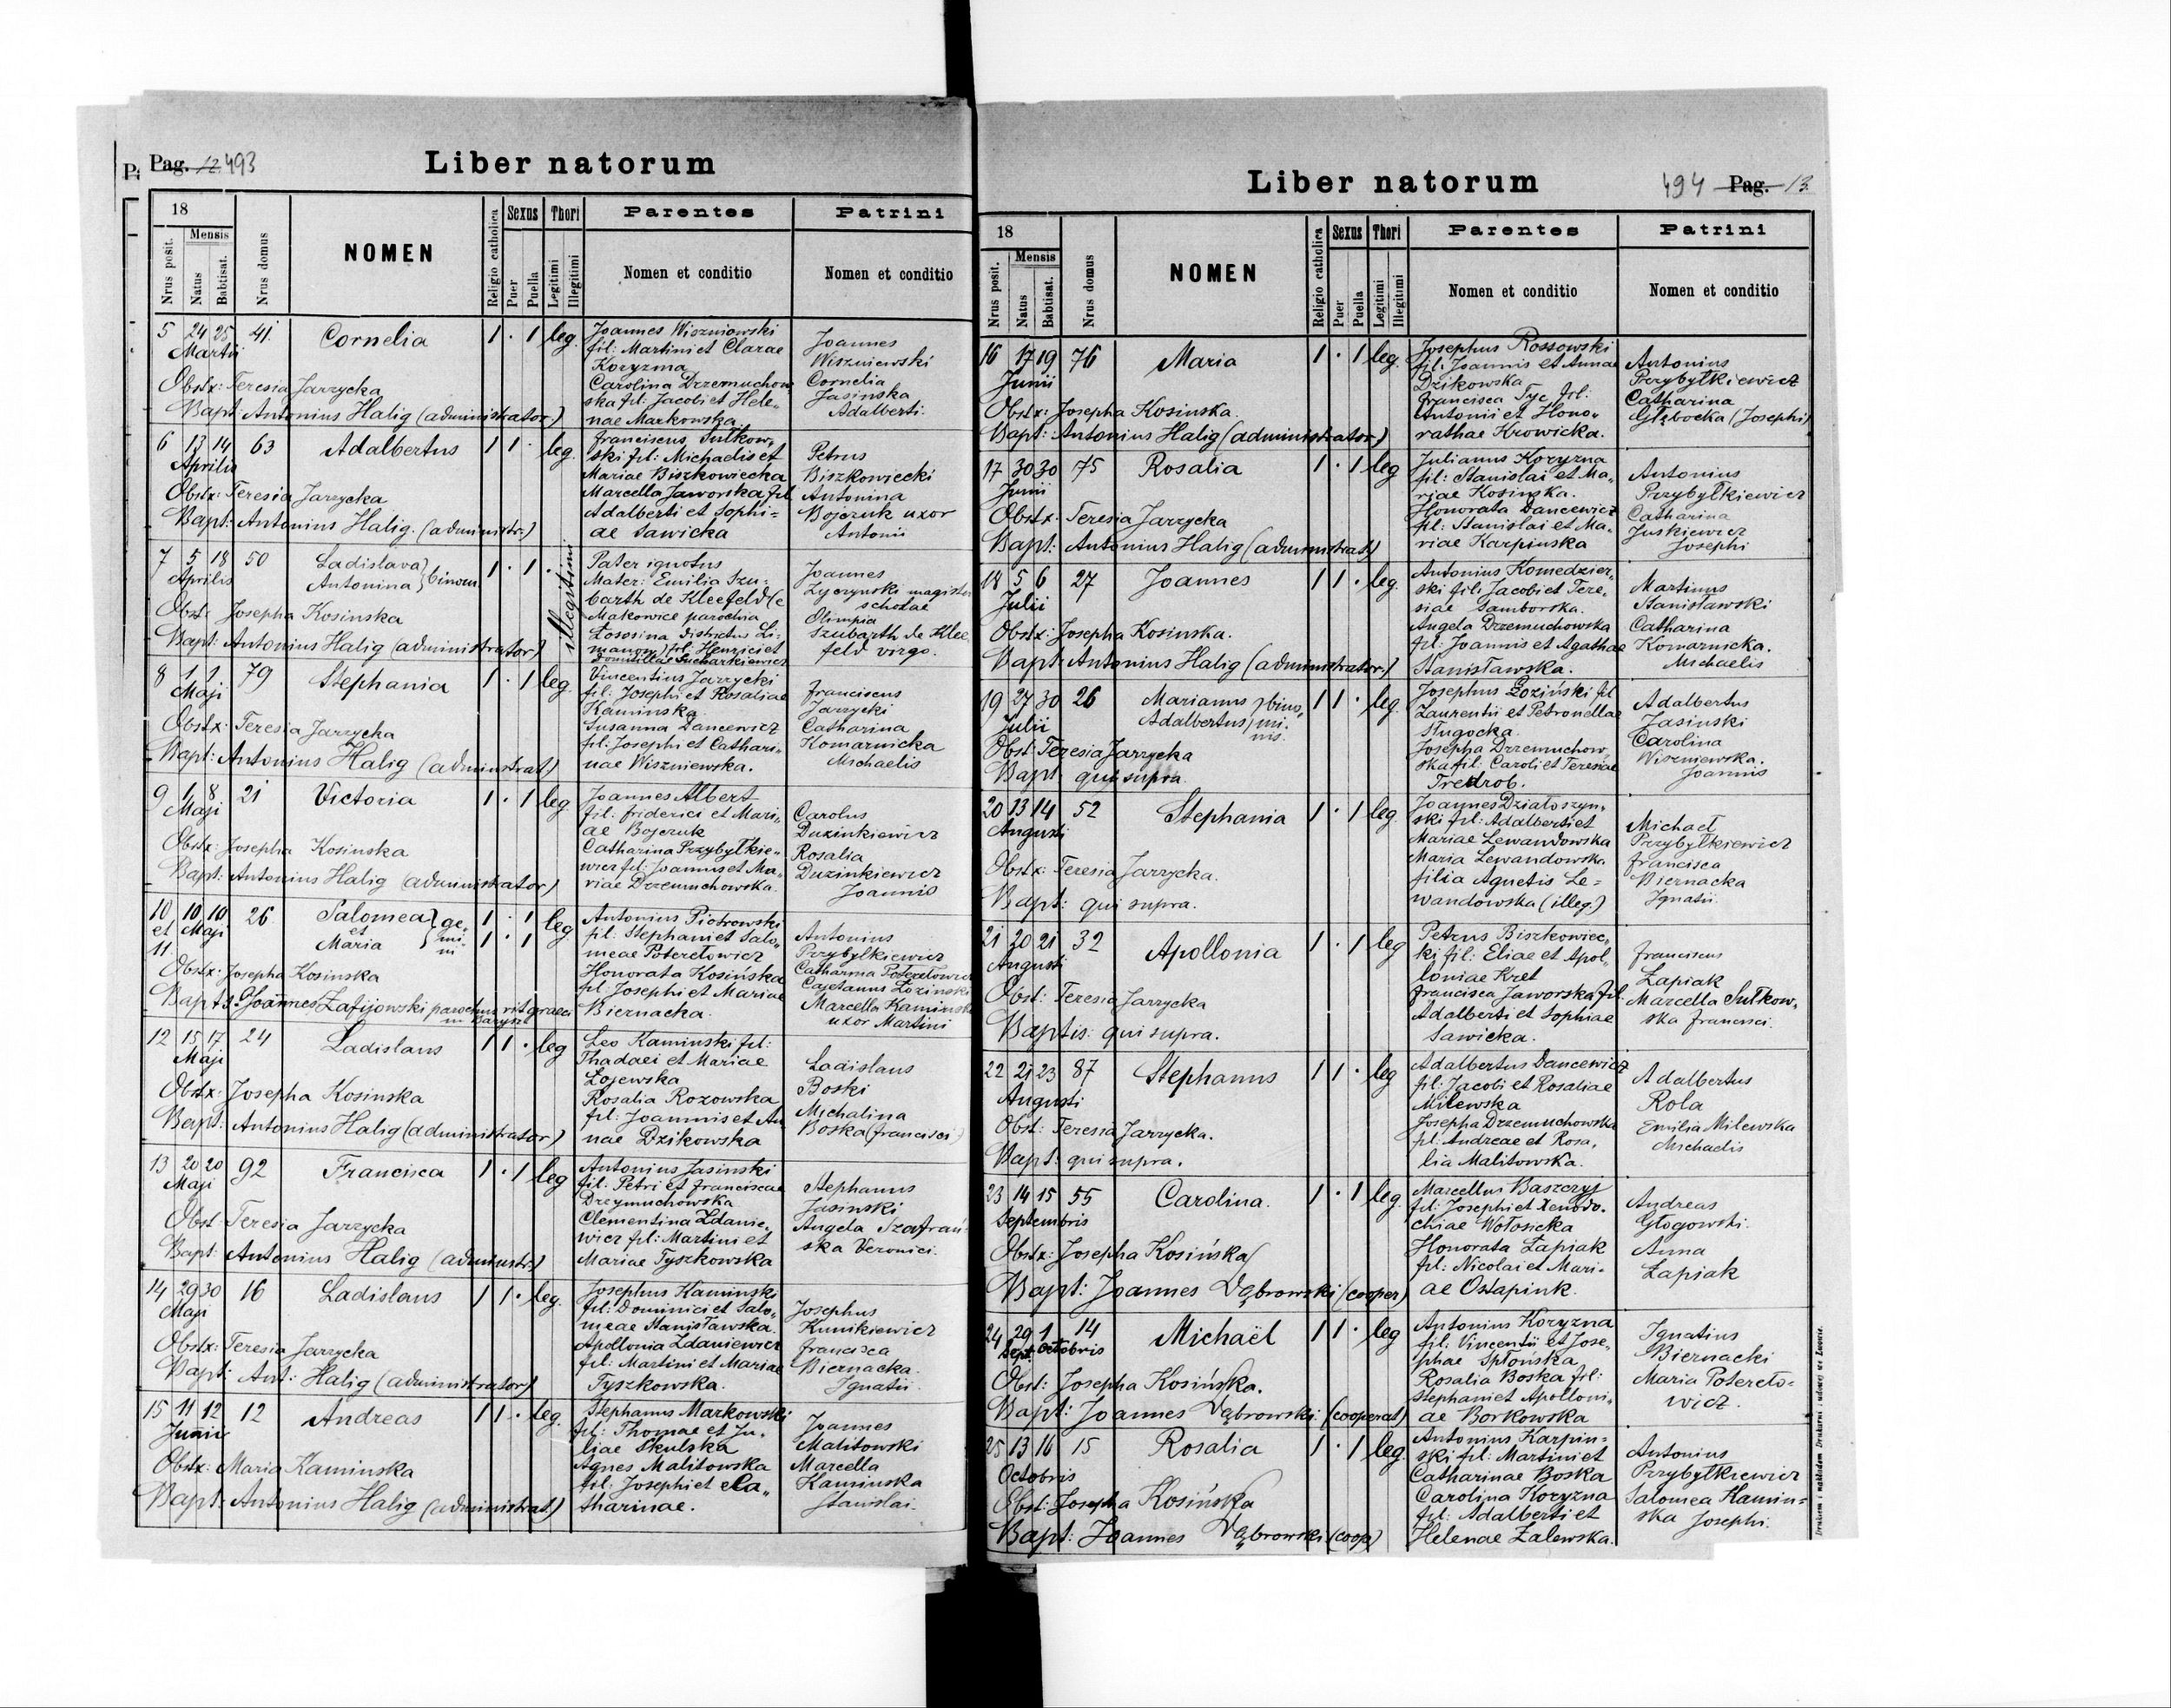 Pag. 12 493
Liber natorum
18
Mensis
Nrus posit.
Natus
Babtisat.
Nrus domus
NOMEN
Religio catholica
Sexus
Puer
Puella
Thori
Legitimi
Illegitimi
Parentes
Nomen et conditio
Patrini
Nomen et conditio
5 24 25 41 Cornelia 1 · 1 leg.
Martii
Obstx: Teresia Jarzycka
Bapt: Antonius Halig (administrator)
Joannes Wiszniowski
fil: Martini et Clarae
Koryzma
Carolina Drzemuchow
ska fil: Jacobi et Hele„
nae Markowska.
Joannes
Wiszniewski
Cornelia
Jasinska
Adalberti.
6 13 14 63 Adalbertus 1 1 · leg.
Aprilis
Obstx: Teresia Jarzycka
Bapt: Antonius Halig. (administr.)
Franciscus Sułkow„
ski fil: Michaelis et
Mariae Biszkowiecka
Marcella Jaworska fil
Adalberti et Sophi=
ae Sawicka
Petrus
Biszkowiecki
Antonina
Bojczuk uxor
Antonii
7 5 18 50 Ladislava
Aprilis Antonina } binom 1 · 1 · illegitimi
Obst: Josepha Kosinska
Bapt: Antonius Halig (administrator)
Pater ignotus
Mater: Emilia Szu„
barth de Kleefeld (e
Makowice parochia
Łososina districtus Li„
manow) fil: Henrici et
Domitillae Sucharkiewicz
Joannes
Zyczynski magister
scholae
Olimpia
Szubarth de Klee
feld virgo.
8 1 2 79 Stephania 1 · 1 leg.
Maji
Obstx: Teresia Jarzycka
Bapt: Antonius Halig (administrat)
Vincentius Jarzycki
fil: Josephi et Rosaliae
Kaminska
Susanna Dancewicz
fil: Josephi et Cathari„
nae Wiszniewska.
Franciscus
Jarzycki
Catharina
Komarnicka
Michaelis
9 1 8 21 Victoria 1 · 1 leg
Maji
Obstx: Josepha Kosinska
Bapt: Antonius Halig (administrator)
Joannes Albert
fil: friderici et Mari„
ae Bojczuk
Catharina Przybyłkie„
wicz fil: Joannis et Ma„
riae Drzemuchowska.
Carolus
Duzinkiewicz
Rosalia
Duzinkiewicz
Joannis
10 10 10 26 Salomea } ge„ 1 · 1 leg
et Maji et mi„
11. Maria ni 1 · 1
Obstx: Josepha Kosinska
Joannes Zafijowski parochus rit graeci
in Barysz
Antonius Piotrowski
fil: Stephani et Salo„
meae Poteretowicz
Honorata Kosińska
fil: Josephi et Mariae
Biernacka.
Antonius
Przybyłkiewicz
Catharina Poteretowicz
Cajetanus Łozinski
Marcella Kaminska
uxor Martini
12 15 17 24 Ladislaus 1 1 · leg
Maji
Obstx: Josepha Kosinska
Bapt: Antonius Halig (administrator)
Leo Kaminski fil:
Thadaei et Mariae
Łojewska
Rosalia Rozowska
fil: Joannis et An
nae Dzikowska
Ladislaus
Boski
Michalina
Boska (francisci)
13 20 20 92 Francisca 1 · 1 leg
Maji
Obst: Teresia Jarzycka
Bapt: Antonius Halig (administr.)
Antonius Jasinski
fil: Petri et franciscae
Drzymuchowska
Clementina Zdanie„
wicz fil: Martini et
Mariae Tyszkowska
Stephanus
Jasinski
Angela Szafrań
ska Veronici.
14 29 30 16 Ladislaus 1 1 · leg.
Maji
Obstx: Teresia Jarzycka
Bapt: Ant: Halig (administrator)
Josephus Kaminski
fil: Dominici et Salo„
meae Stanisławska.
Apollonia Zdaniewicz
fil: Martini et Mariae
Tyszkowska.
Josephus
Kunikiewicz
francisca
Biernacka.
Ignatii
15 11 12 12 Andreas 1 1 · leg.
Junii
Obstx: Maria Kaminska
Bapt: Antonius Halig (administrat)
Stephanus Markowski
fil: Thomae et Ju„
liae Skulska
Agnes Malitowska
fil: Josephi et Ca„
tharinae.
Joannes
Malitowski
Marcella
Kaminska
Stanislai.
Liber natorum
494 Pag. 13
18
Mensis
Nrus posit.
Natus
Babtisat.
Nrus domus
NOMEN
Religio catholica
Sexus
Puer
Puella
Thori
Legitimi
Illegitimi
Parentes
Nomen et conditio
Patrini
Nomen et conditio
16 17 19 76 Maria 1 · 1 leg.
Junii
Obstx: Josepha Kosinska.
Bapt: Antonius Halig (administrator)
Josephus Rossowski
fil: Joannis et Annae
Dzikowska
Francisca Tyc fil:
Antonii et Hono„
rathae Krowicka.
Antonius
Przybyłkiewicz
Catharina
Głębocka (Josephi)
17 30 30 75 Rosalia 1 · 1 leg
Junii
Obstx: Teresia Jarzycka
Bapt: Antonius Halig (administrat)
Julianus Koryzna
fil: Stanislai et Ma„
riae Kosinska.
Honorata Dancewicz
fil: Stanislai et Ma„
riae Karpinska
Antonius
Przybyłkiewicz
Catharina
Juskiewicz
Josephi
18 5 6 27 Joannes 1 1 · leg.
Julii
Obstx: Josepha Kosinska.
Bapt: Antonius Halig (administrator)
Antonius Komedzier„
ski fil: Jacobi et Tere„
siae Samborska.
Angela Drzemuchowska
fil: Joannis et Agathae
Stanisławska.
Martinus
Stanisławski
Catharina
Komarnicka.
Michaelis
19 27 30 26 Marianus } bino„ 1 1 · leg.
Julii Adalbertus mi„
nis.
Obst: Teresia Jarzycka
Bapt qui supra.
Josephus Łoziński fil
Laurentii et Petronellae
Sługocka.
Josepha Drzemuchow„
ska fil: Caroli et Teresiae
Tredrob.
Adalbertus
Jasinski
Carolina
Wiszniewska.
Joannis
20 13 14 52 Stephania 1 · 1 leg
Augusti
Obstx: Teresia Jarzycka.
Bapt: qui supra.
Joannes Działoszyn„
ski fil: Adalberti et
Mariae Lewandowska
Maria Lewandowska
filia Agnetis Le=
wandowska (illeg.)
Michael
Przybyłkiewicz
francisca
Biernacka
Ignatii.
21 20 21 32 Apollonia 1 · 1 leg
Augusti
Obst: Teresia Jarzycka
Baptis: qui supra.
Petrus Biszkowiec„
ki fil: Eliae et Apol„
loniae Kret
Francisca Jaworska fil.
Adalberti et Sophiae
Sawicka.
Franciscus
Łapiak
Marcella Sułkow„
ska francisci.
22 21 23 87 Stephanus 1 1 · leg
Augusti
Obst: Teresia Jarzycka.
Bapt: qui supra.
Adalbertus Dancewicz
fil: Jacobi et Rosaliae
Milewska
Josepha Drzemuchowska
fil: Andreae et Rosa„
lia Malitowska.
Adalbertus
Rola
Emilia Milewska
Michaelis
23 14 15 55 Carolina. 1 · 1 leg.
Septembris
Obstx: Josepha Kosińska
Bapt: Joannes Dąbrowski (cooper)
Marcellus Baszczyj
fil: Josephi et Xenodo„
chiae Wołosicka
Honorata Łapiak
fil: Nicolai et Mari„
ae Ostapiuk.
Andreas
Głogowski.
Anna
Łapiak
24 29 1 14 Michaël 1 1 · leg
Sept. octobris
Obst: Josepha Kosińska.
Bapt: Joannes Dąbrowski (cooperat)
Antonius Koryzna
fil: Vincentii et Jose„
phae Spłońska
Rosalia Boska fil:
Stephani et Apolloni„
ae Borkowska
Ignatius
Biernacki
Maria Potereto=
wicz.
25 13 16 15 Rosalia 1 · 1 leg
Octobris
Obst: Josepha Kosińska
Bapt: Joannes Dąbrowski (coop)
Antonius Karpin=
ski fil: Martini et
Catharinae Boska
Carolina Koryzna
fil: Adalberti et
Helenae Zalewska.
Antonius
Przybyłkiewicz
Salomea Kamin=
ska Josephi.